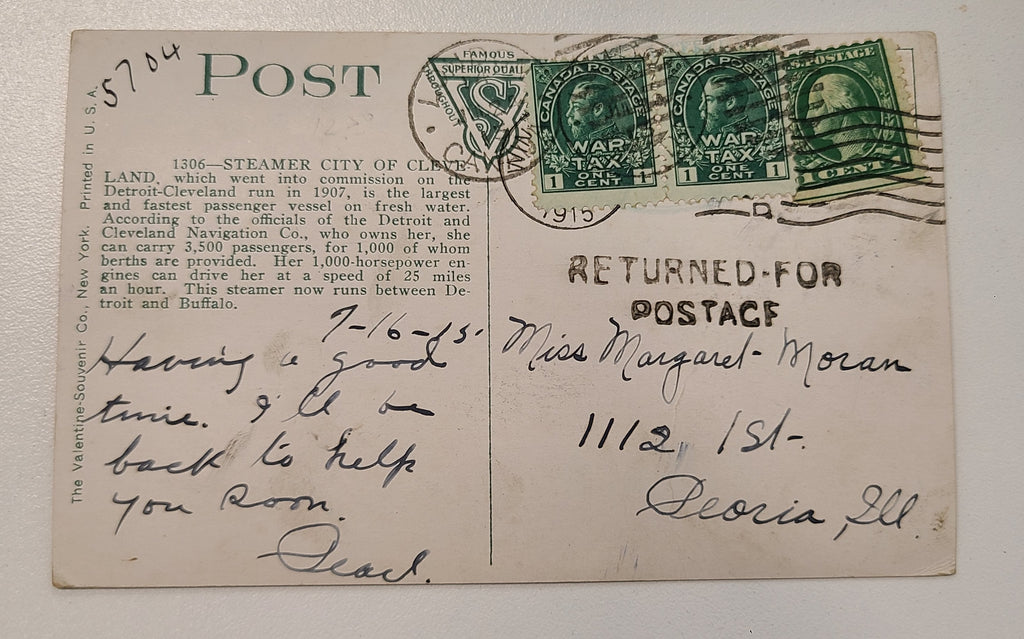 55704
POST
FAMOUS
SUPERIOR QUALI
THROUGHOUT
VS
CANADA POSTAGE
WAR
TAX
1 ONE 1
CENT
CANADA POSTAGE
WAR
TAX
1 ONE 1
CENT
S. POSTAGE
1 CENT
1915
D
1306—STEAMER CITY OF CLEVE-
LAND, which went into commission on the
Detroit-Cleveland run in 1907, is the largest
and fastest passenger vessel on fresh water.
According to the officials of the Detroit and
Cleveland Navigation Co., who owns her, she
can carry 3,500 passengers, for 1,000 of whom
berths are provided. Her 1,000-horsepower en-
gines can drive her at a speed of 25 miles
an hour. This steamer now runs between De-
troit and Buffalo.
The Valentine-Souvenir Co., New York. Printed in U. S. A.
RETURNED-FOR
POSTAGE
7-16-15.
Having a good
time. I'll be
back to help
you soon.
Pearl.
Miss Margaret Moran
1112, 1st-
Peoria, Ill.